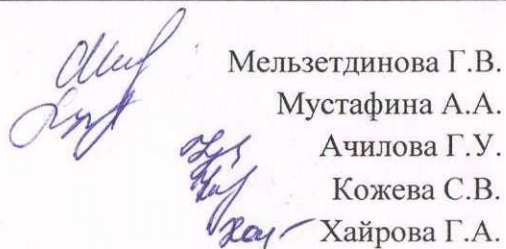 Мельзетдинова Г.В.
Мустафина А.А.
Ачилова Г.У.
Кожева С.В.
Хайрова Г.А.